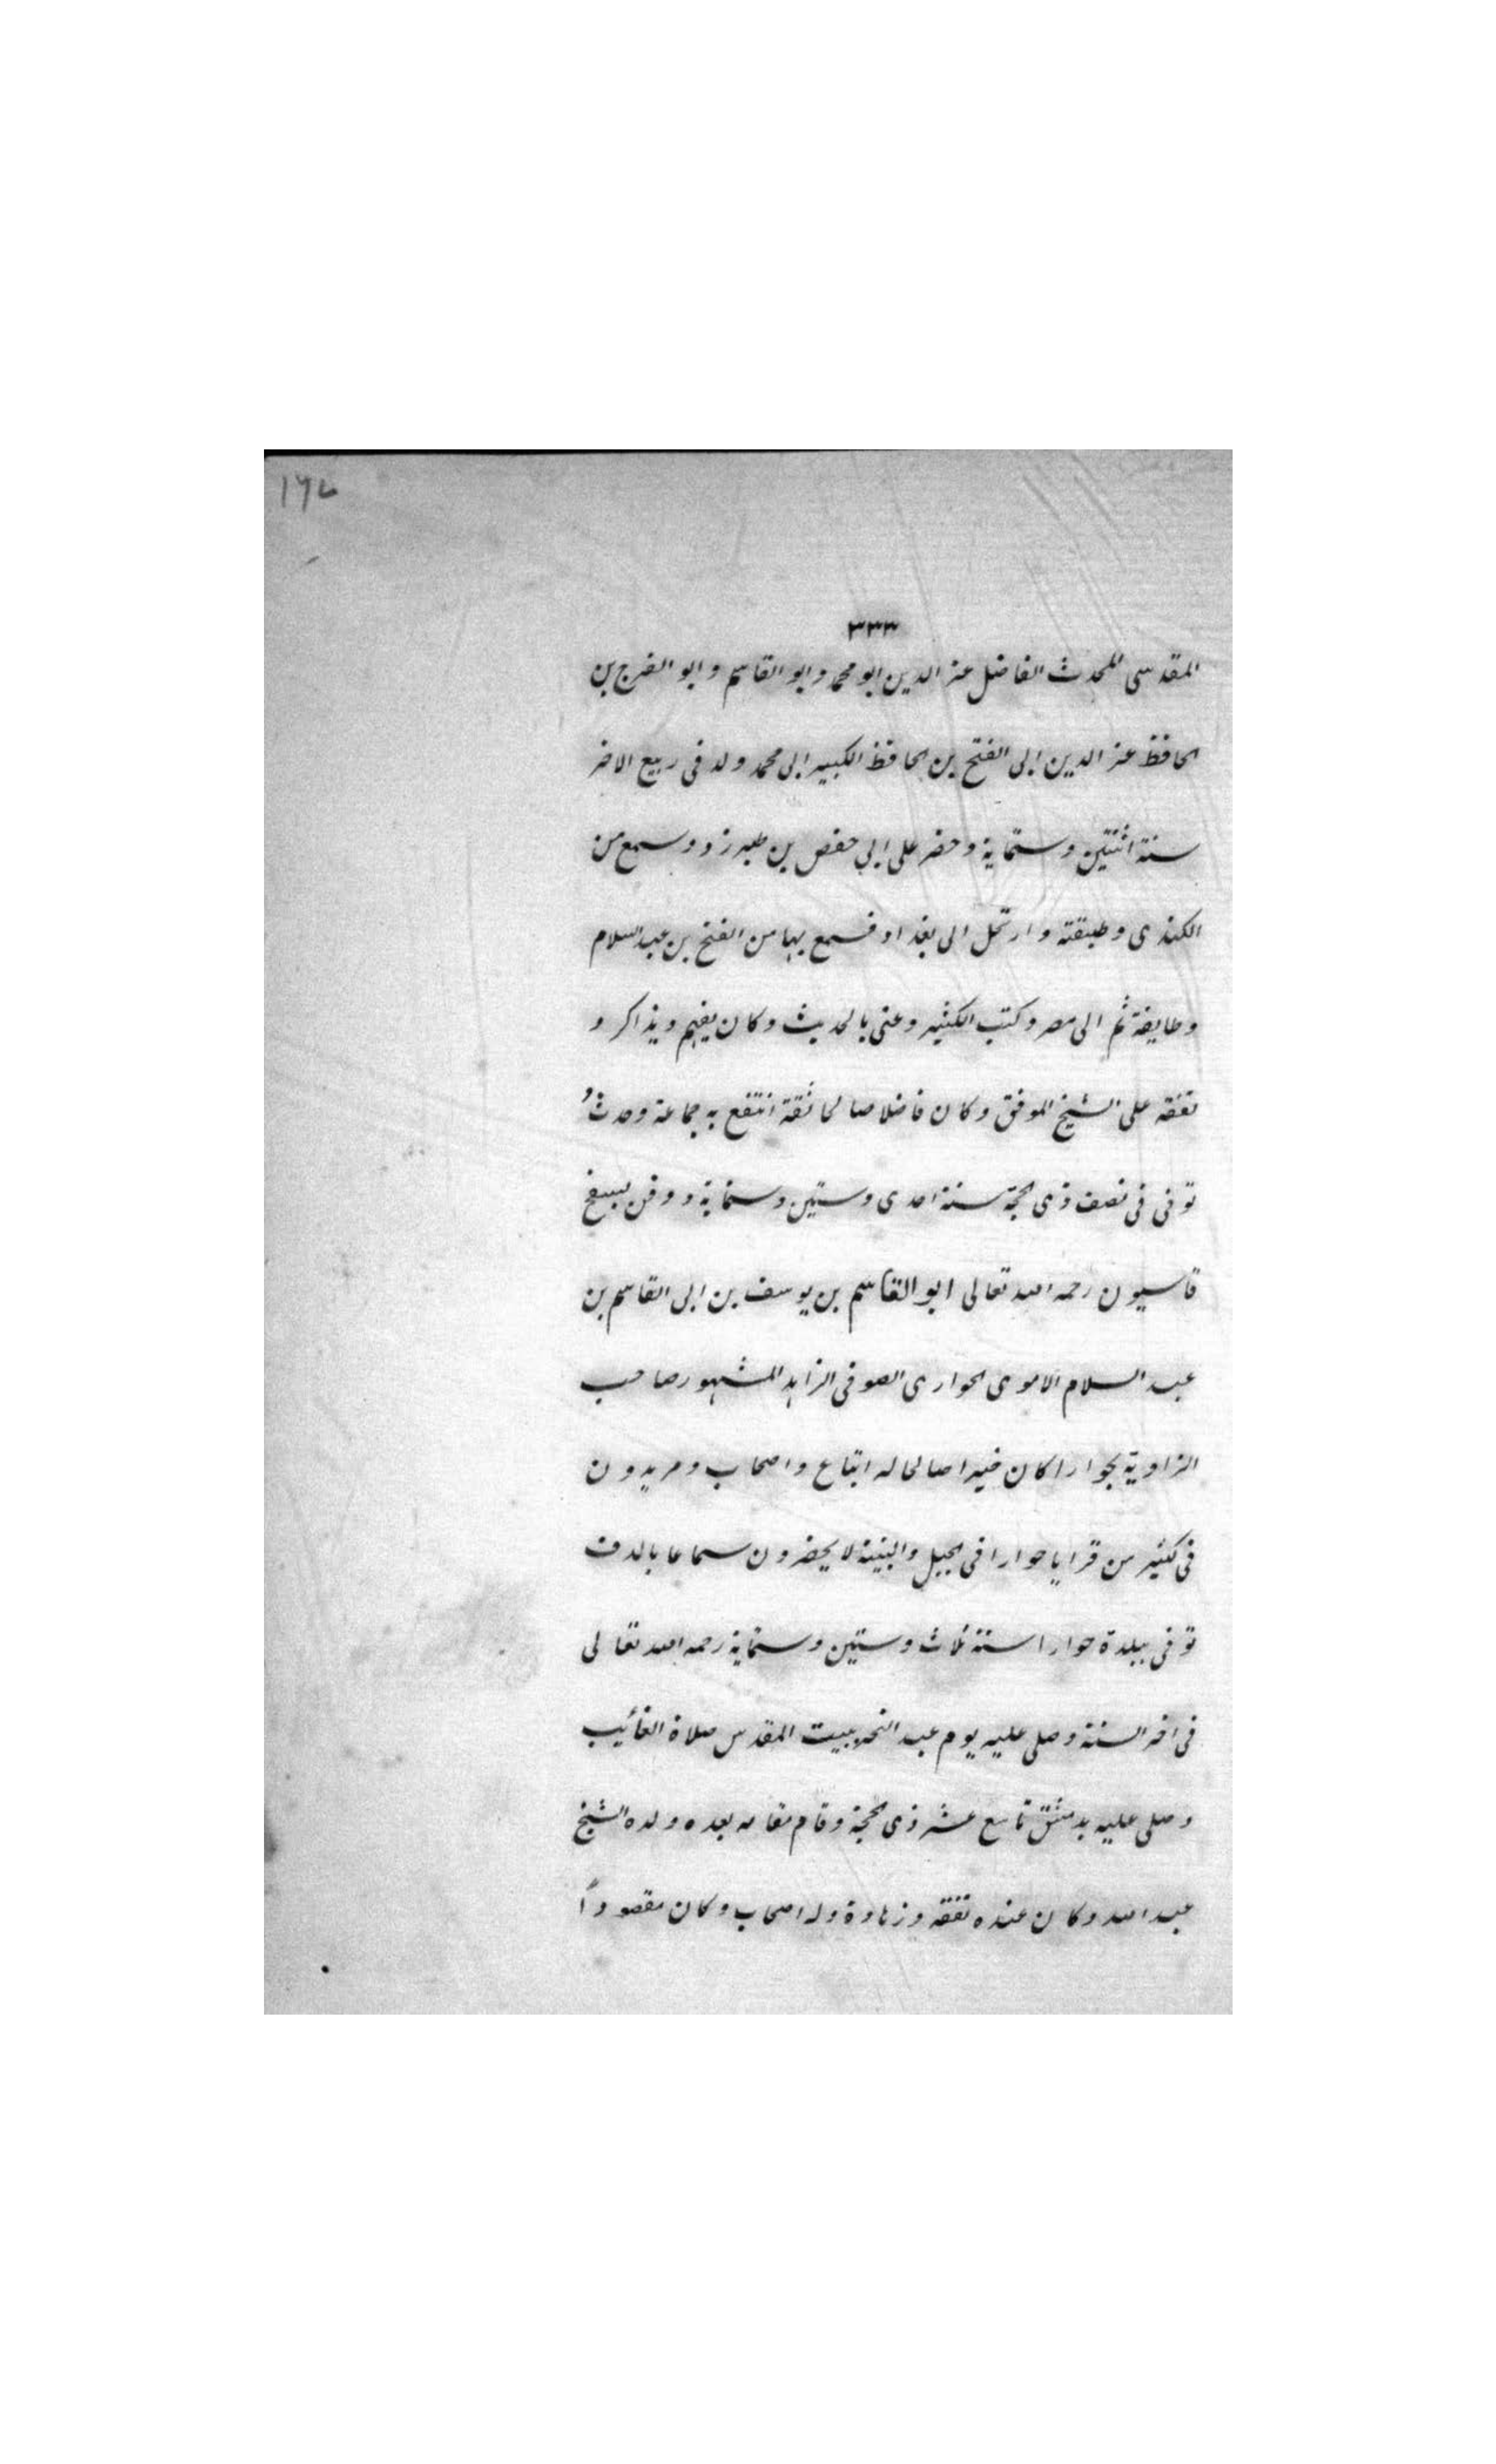 ١٦٧
٣٣٣
المقدسى المحدث الفاضل عز الدين ابو محمد وابو القاسم وابو الفرج بن
الحافظ عز الدين ابى الفتح بن الحافظ الكبير ابى محمد ولد فى ربيع الاخر
سنة اثنتين وستماية وحضر على ابى حفص بن طبرزد وسمع من
الكندى وطبقته وارتحل الى بغداد فسمع بها من الفتح بن عبد السلام
وطايفة ثم الى مصر وكتب الكثير وعنى بالحديث وكان يفهم ويذاكر و
تفقه على الشيخ الموفق وكان فاضلا صالحا ثقة انتفع به جماعة وحدث و
توفى فى نصف ذى الحجة سنة احدى وستين وستماية ودفن بسفح
قاسيون رحمه الله تعالى ابو القاسم بن يوسف بن ابى القاسم بن
عبد السلام الاموى الحوارى الصوفى الزاهد المشهور صاحب
الزاوية بحوارا كان خيرا صالحا له اتباع واصحاب ومريدون
فى كثير من قرايا حوارا فى الجبل والبثنية لا يحضرون سماعا بالدف
توفى ببلدة حوارا سنة ثلاث وستين وستماية رحمه الله تعالى
فى اخر السنة وصلى عليه يوم عيد النحر ببيت المقدس صلاة الغائب
وصلى عليه بدمشق تاسع عشر ذى الحجة وقام مقامه بعده ولده الشيخ
عبد الله وكان عنده تفقه وزهادة وله اصحاب وكان مقصودًا